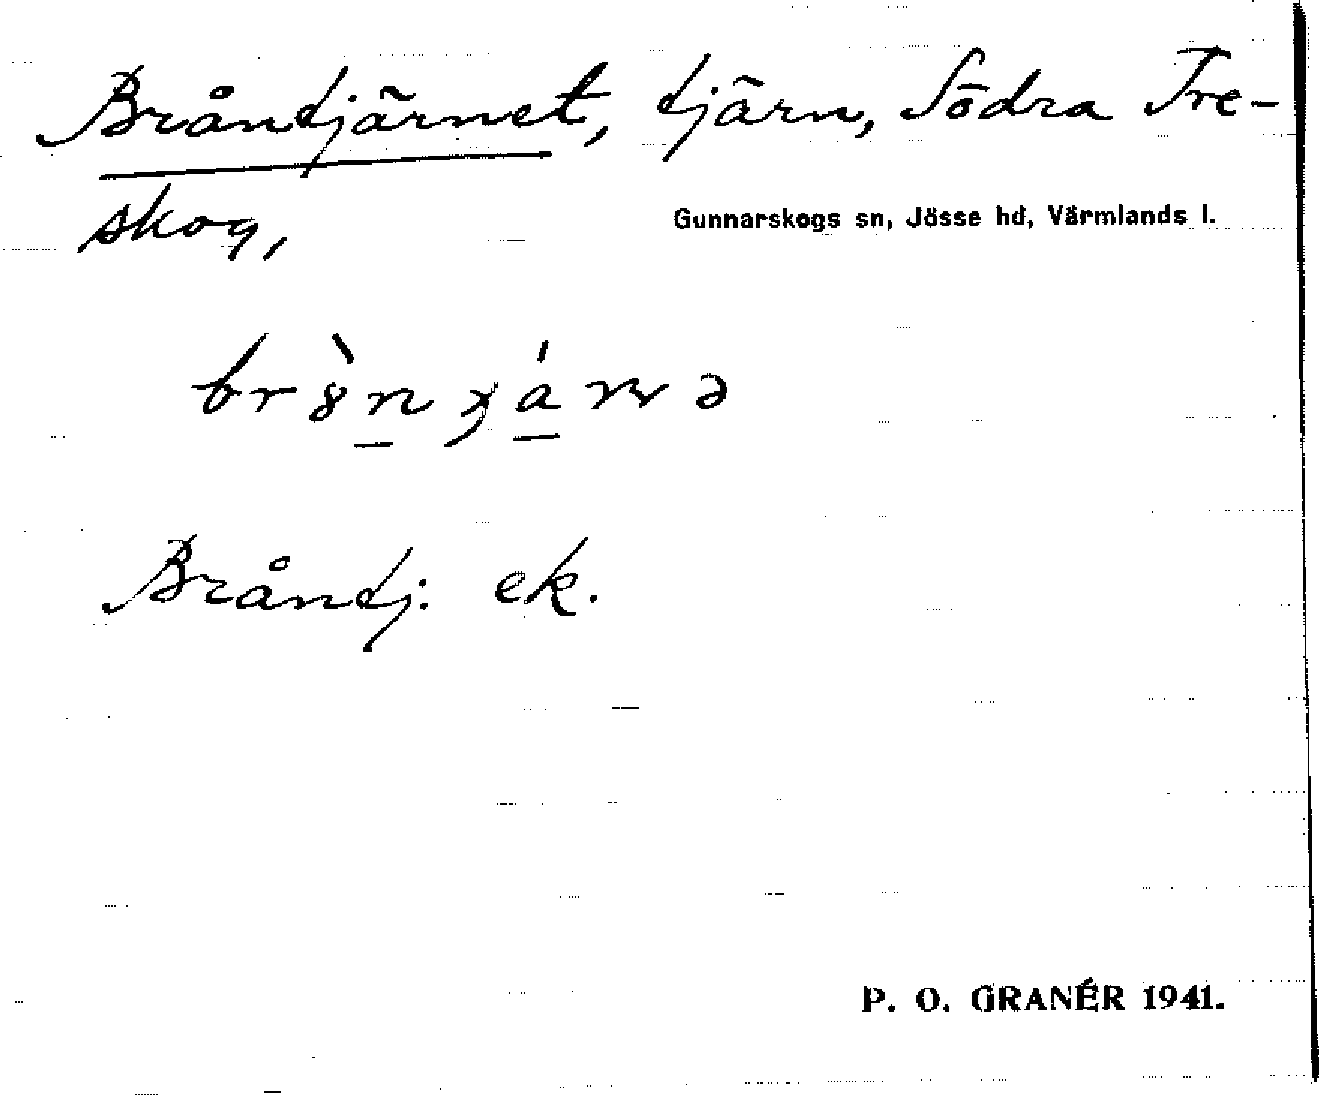 Bråntjärnet, tjärn, Södra Tre-
skog,
Gunnarskogs sn, Jösse hd, Värmlands l.
Bråntj: ek.
P. O. GRANÉR 1941.